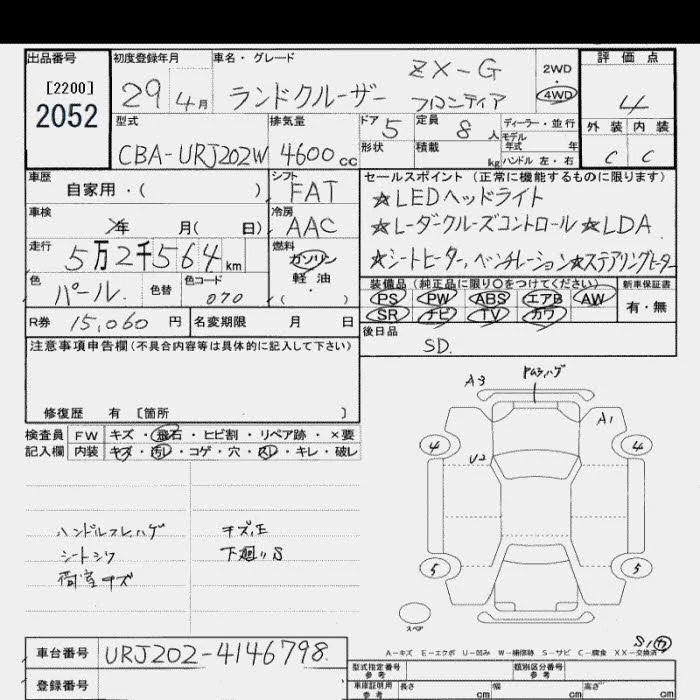 出品番号
[2200]
2052
初度登録年月
29 4月
車名・グレード
ランドクルーザー
ZX-G
フロンティア
2WD
・
4WD
評価点
4
外装 内装
C C
型式
CBA-URJ202W
排気量
4600cc
ドア 5
形状
定員 8人
積載 kg
ディーラー・並行
モデル
年式 年
ハンドル 左・右
車歴
自家用・( )
シフト
FAT
車検
年 月( 日)
冷房
AAC
走行
5万2千564km
燃料
ガソリン
軽油
・
( )
色
パール
色替
色コード
070
R券 15,060円
名変期限 月 日
セールスポイント(正常に機能するものに限ります)
☆LEDヘッドライト
☆レーダクルーズコントロール☆LDA
☆シートヒーター、ベンチレーション☆ステアリングヒーター
装備品(純正品に限り○をつけてください)
PS PW ABS エアB AW
SR ナビ TV カワ
新車保証書
有・無
後日品
SD.
注意事項申告欄(不具合内容等は具体的に記入して下さい)
修復歴 有 [箇所 ]
検査員 FW キズ・飛石・ヒビ割・リペア跡・×要
記入欄 内装 キズ・汚レ・コゲ・穴・スレ・キレ・破レ
ハンドルスレハゲ
シートシワ
荷室キズ
キズ、E
下廻りS
A3
A1
U2
4
4
5
5
スペア
A-キズ E-エクボ U-凹み W-補修跡 S-サビ C-腐食 XX-交換済
車台番号 URJ202-4146798
登録番号
型式指定番号
参考
類別区分番号
参考
車庫証明用
参考
長さ cm
幅 cm
高さ cm